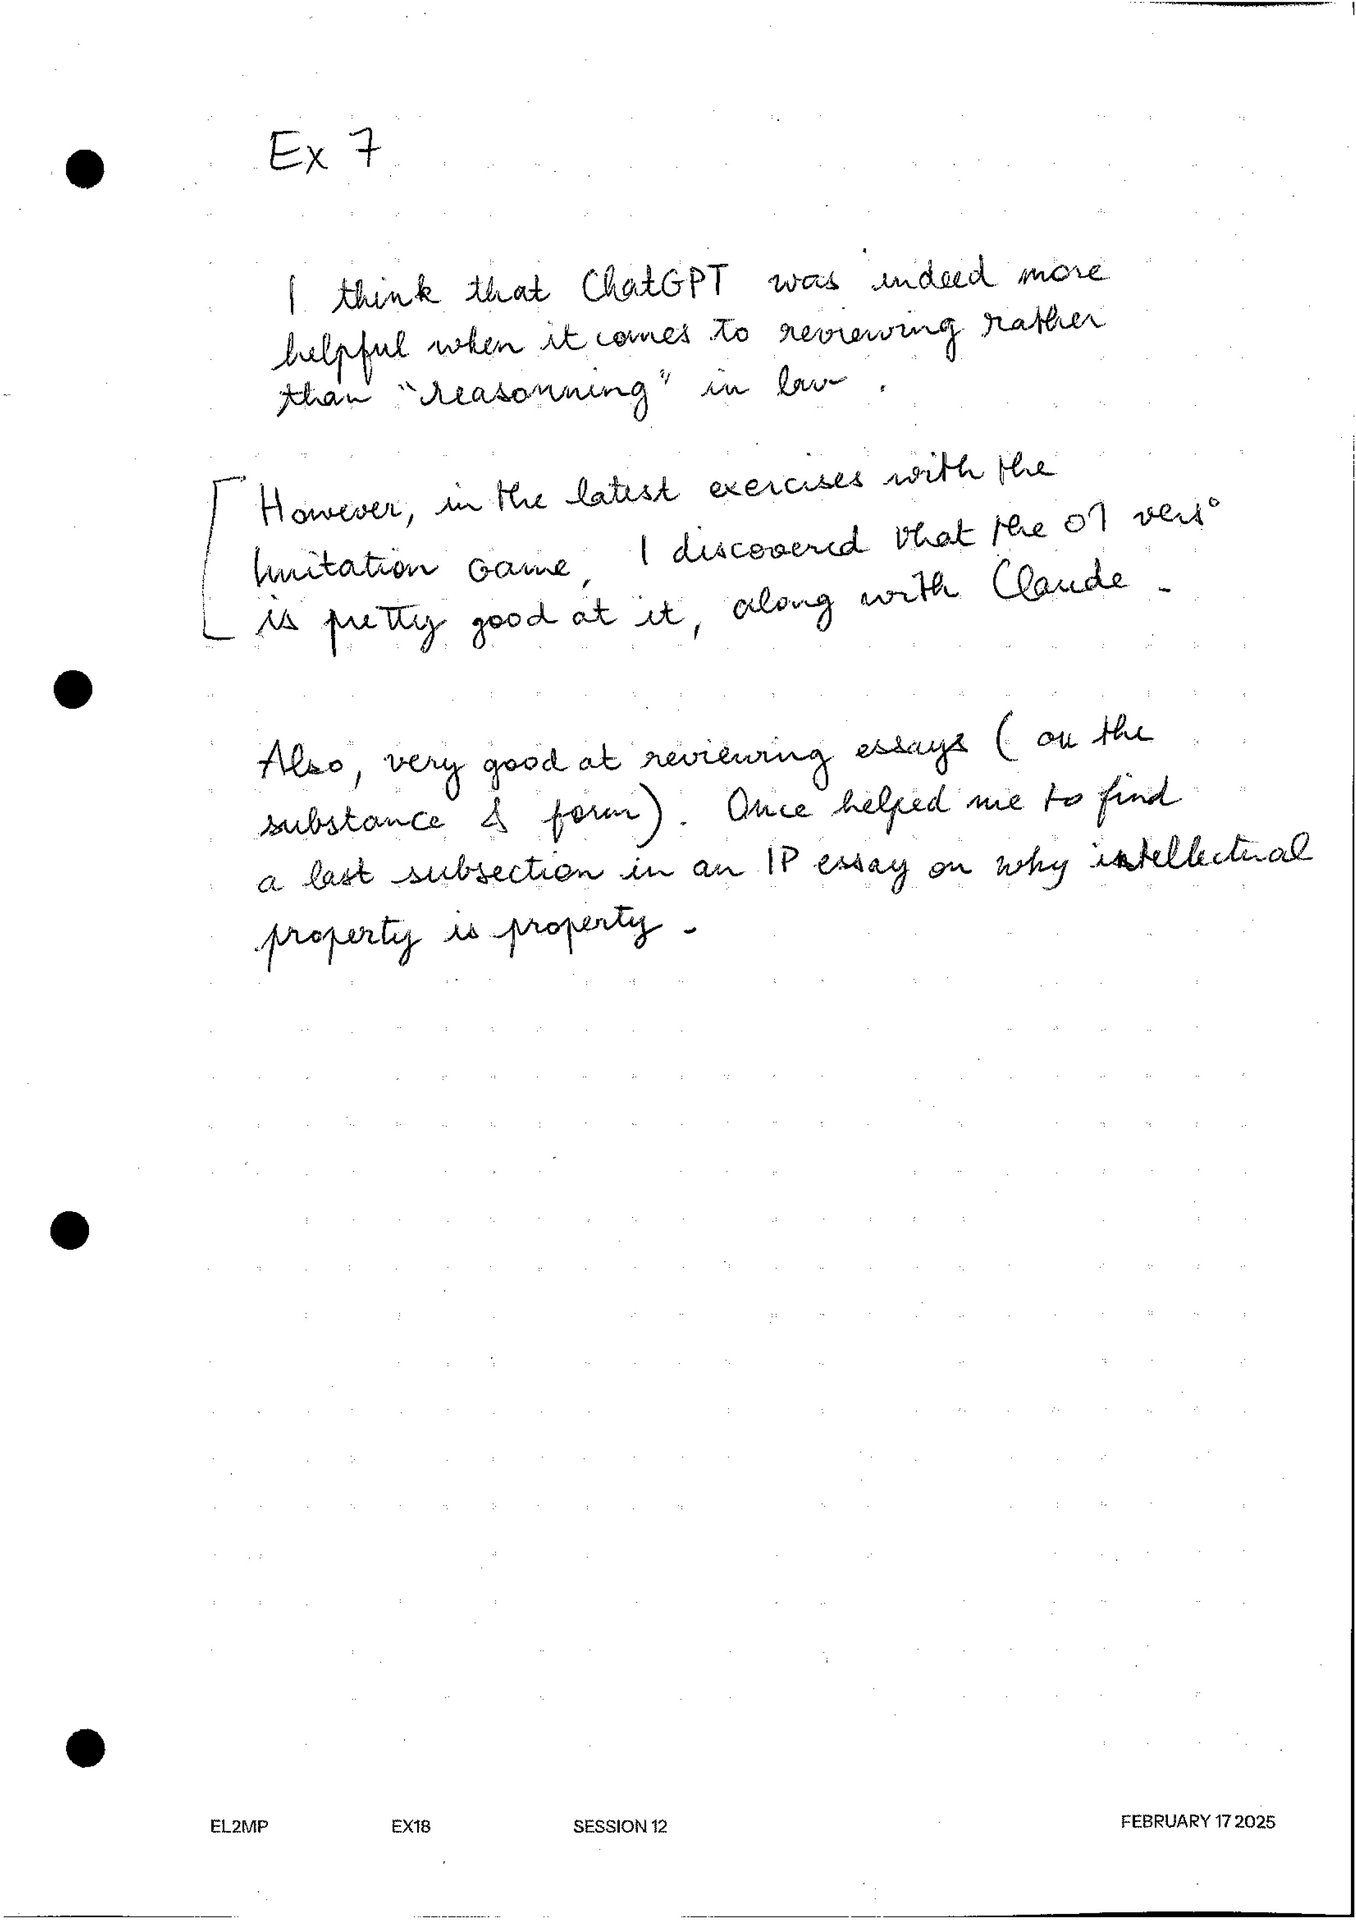 Ex 7
I think that ChatGPT was indeed more
helpful when it comes to reviewing rather
than "reasonning" in law.
However, in the latest exercises with the
Imitation Game, I discovered that the o1 vers°
is pretty good at it, along with Claude.
Also, very good at reviewing essays (on the
substance & form). Once helped me to find
a last subsection in an IP essay on why intellectual
property is property.
EL2MP EX18 SESSION 12 FEBRUARY 17 2025